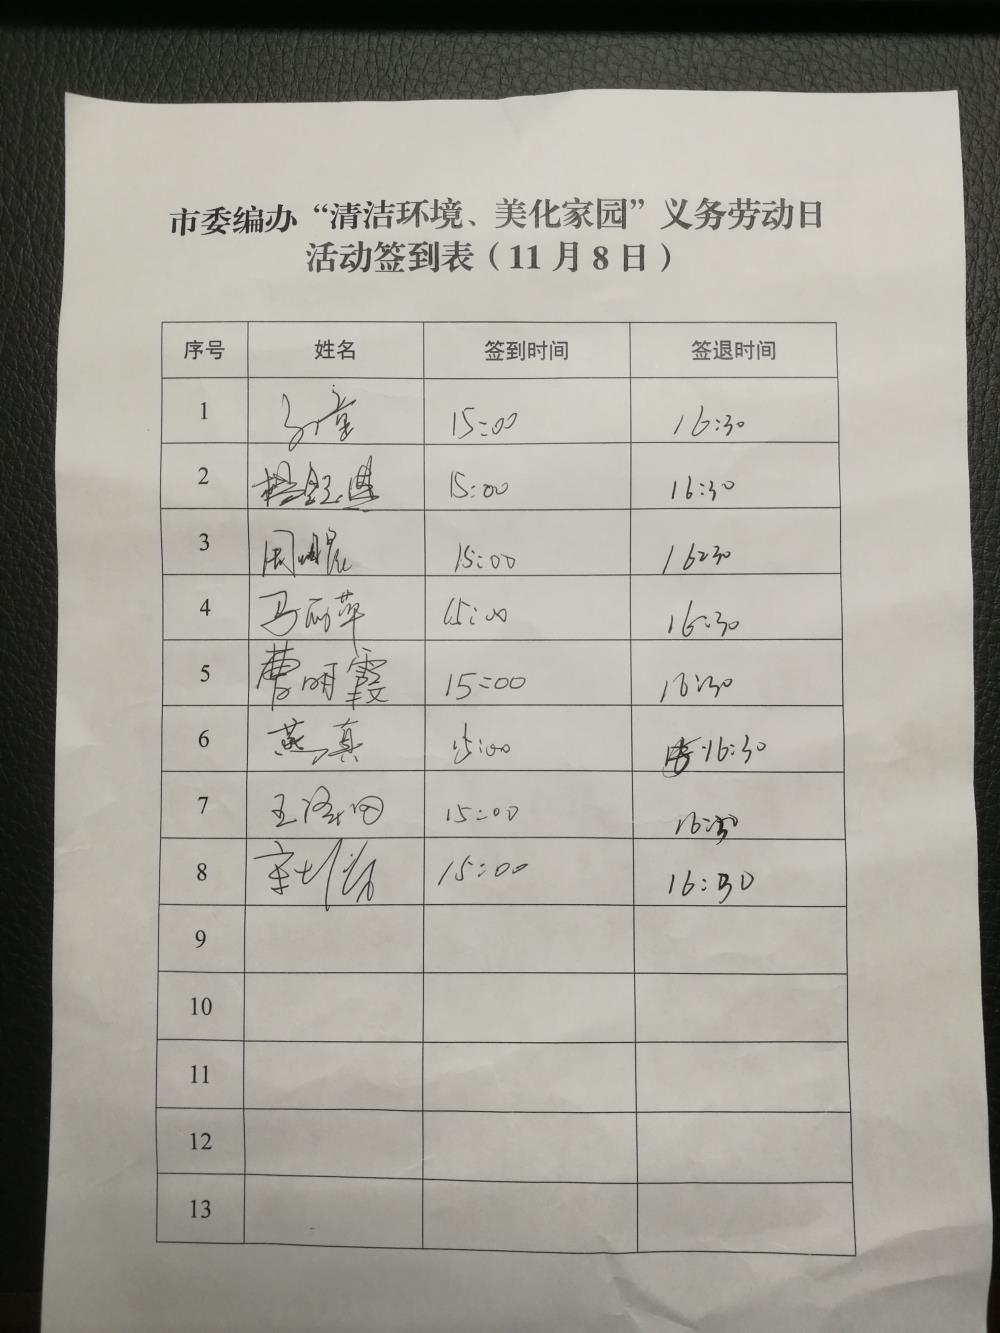 市委编办“清洁环境、美化家园”义务劳动日
活动签到表（11月8日）
序号 姓名 签到时间 签退时间
1 15:00 16:30
2 15:00 16:30
3 周 15:00 16:30
4 马丽萍 15:00 16:30
5 曹明霞 15:00 16:30
6 燕真 15:00 16:30
7 王 15:00 16:30
8 15:00 16:30
9
10
11
12
13